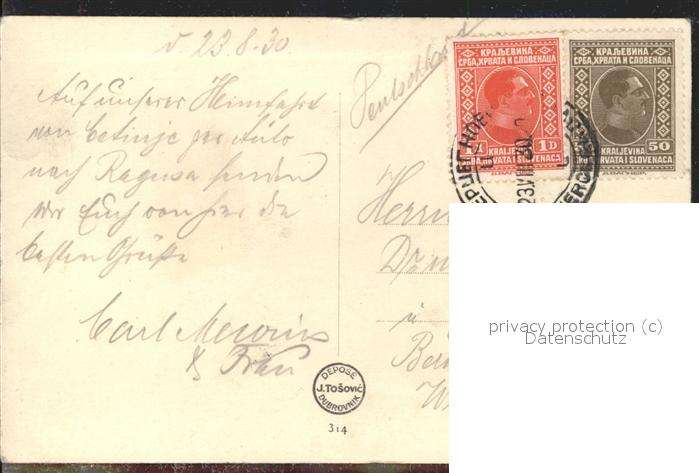 d 23.8.30
Auf unserer Heimfahrt
von Cetinje per Auto
nach Ragusa senden
wir Euch von hier die
besten Grüße
Carl
& Frau
DÉPOSÉ
J. TOŠOVIĆ
DUBROVNIK
314
Deutschland
КРАЉЕВИНА
СРБА, ХРВАТА И СЛОВЕНАЦА
1Д 1D
KRALJEVINA
SRBA, HRVATA I SLOVENACA
КРАЉЕВИНА
СРБА, ХРВАТА И СЛОВЕНАЦА
50
KRALJEVINA
HRVATA I SLOVENACA
Herrn
u
privacy protection (c)
Datenschutz